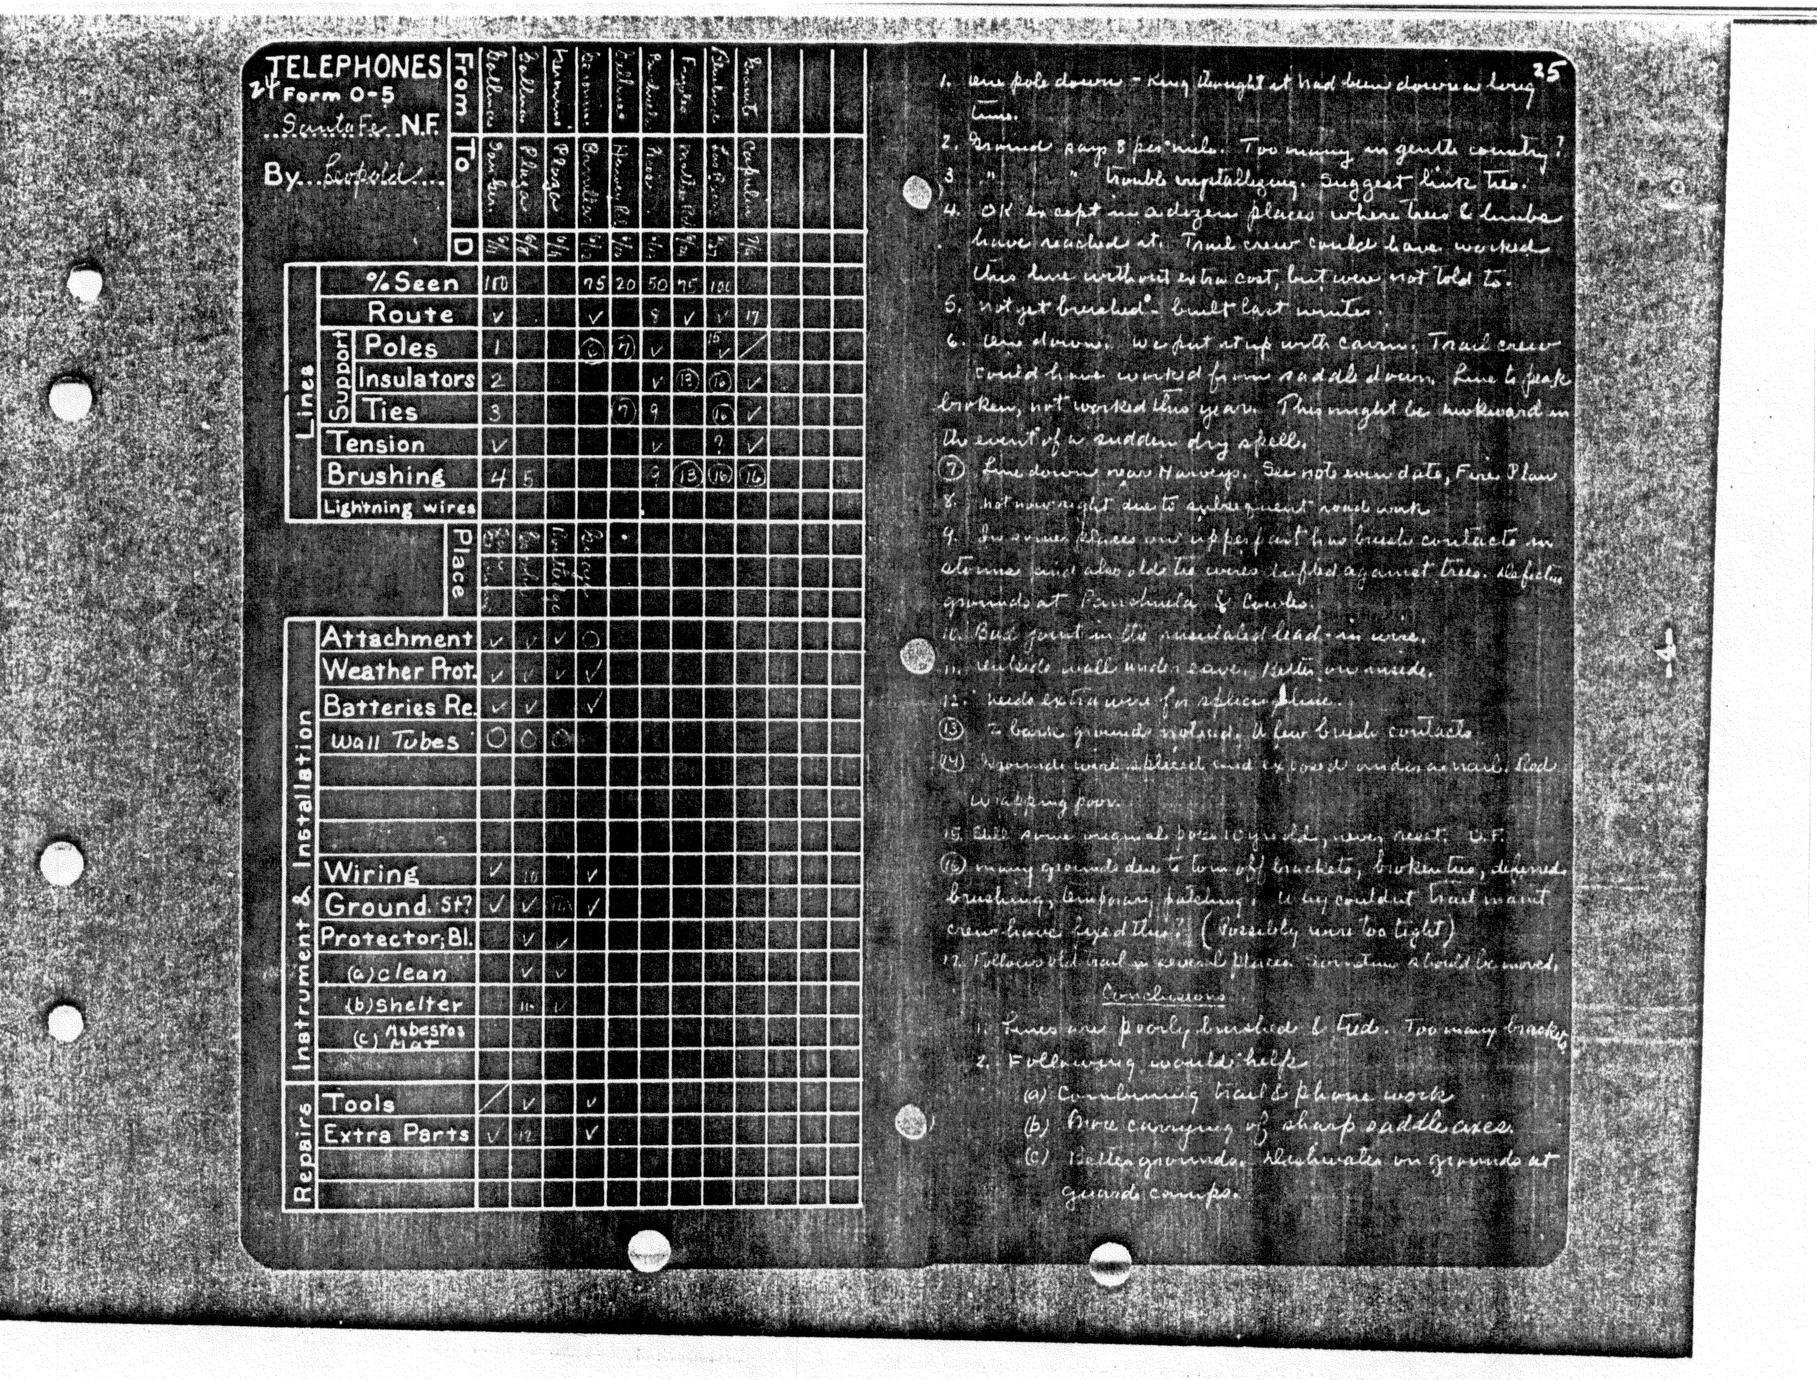 TELEPHONES
24 Form O-5
Santa Fe N.F.
By Leopold
From
To Plaza Plaza
D
Lines
% Seen 100 75 20 50 75 100
Route ✓ ✓ 8 ✓ ✓ 17
Support
Poles 1 6 7 ✓ 15 ✓ /
Insulators 2 ✓ 13 16 ✓
Ties 3 7 9 16 ✓
Tension ✓ ✓ ? ✓
Brushing 4 5 9 13 16 16
Lightning wires
Place
Instrument & Installation
Attachment ✓ ✓ ✓ O
Weather Prot. ✓ ✓ ✓ ✓
Batteries Re. ✓ ✓ ✓
Wall Tubes O O O
Wiring ✓ 10 ✓
Ground. St? ✓ ✓ 14 ✓
Protector; Bl. ✓ ✓
(a) clean ✓ ✓
(b) Shelter 11 ✓
(c) Asbestos
Mat
Repairs
Tools / ✓ ✓
Extra Parts ✓ 12 ✓
25
1. One pole down - King thought it had been down a long
time.
2. Ground says 8 per mile. Too many in gentle country?
3 " " trouble crystallizing. Suggest link ties.
4. OK except in a dozen places where trees & limbs
have reached it. Trail crew could have worked
this line without extra cost, but were not told to.
5. Not yet brushed - built last winter.
6. One down. We put it up with cairn. Trail crew
could have worked from saddle down. Line to peak
broken, not worked this year. This might be awkward in
the event of a sudden dry spell.
(7) Line down near Harveys. See note even date, Fire Plan
8. Not now right due to subsequent road work
9. In some places on upper part has brush contacts in
storms and also old tie wires lifted against trees. Defective
grounds at Panchuela & Cowles.
10. Bad joint in the insulated lead-in wire.
11. Outside wall under eave. Better on inside.
12. Needs extra wire for splicing line.
(13) bark grounds noticed. A few brush contacts
(14) Ground wire spliced and exposed under a nail. Rod
wrapping poor.
15. Still some original poles 10 yrs old, never reset.
(16) many grounds due to torn off brackets, broken ties, deferred
brushing, temporary patching. Why couldnt trail maint
crew have fixed this? (Possibly wire too tight)
17. Follows old trail in several places. Sometime should be moved.
Conclusions
1. Lines are poorly brushed & tied. Too many brackets.
2. Following would help
(a) Combining trail & phone work
(b) More carrying of sharp saddle axes.
(c) Better grounds. Dishwater on grounds at
guard camps.